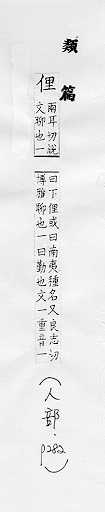 類篇
俚
兩耳切説
文聊也一
曰下俚或曰南夷種名又良志切
博雅聊也一曰勤也文一重音一
(人部.p282)